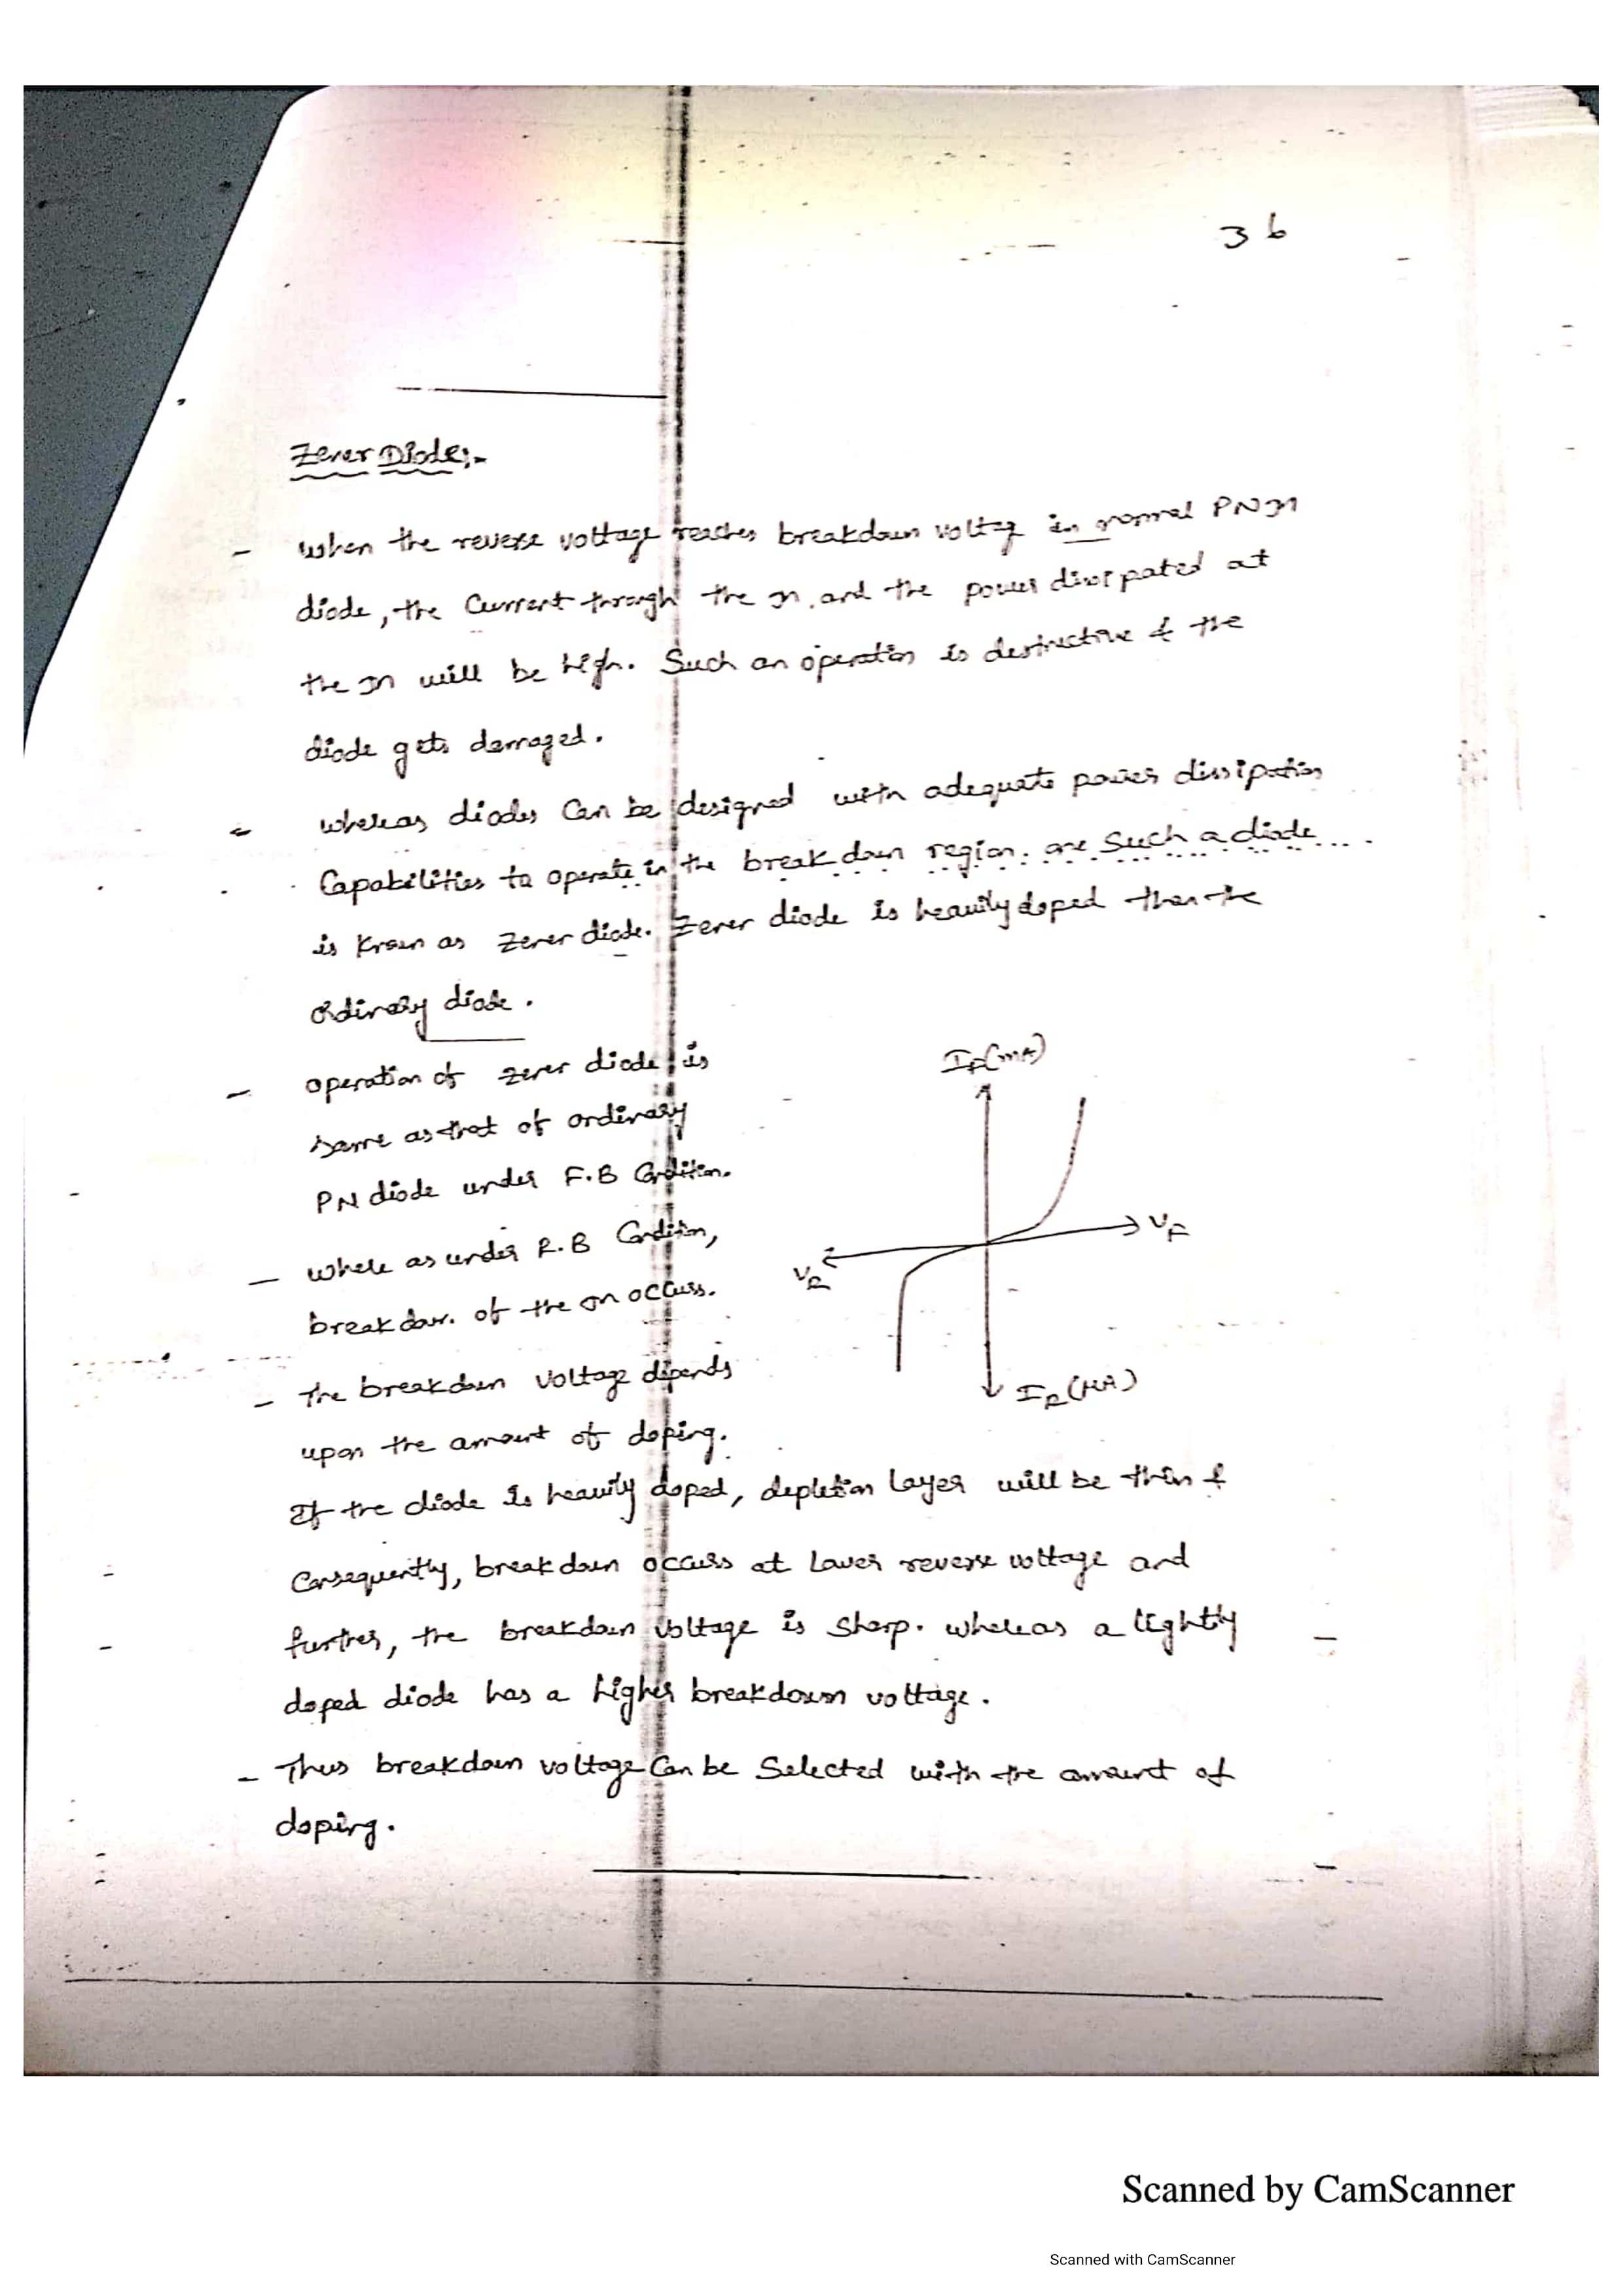 36
Zener Diode:-
- When the reverse voltage reaches breakdown voltag in normal PN Jn
diode, the Current through the Jn. and the power dissipated at
the Jn will be high. Such an operation is destructive & the
diode gets damaged.
- whereas diodes Can be designed with adequate power dissipation
Capabilities to operate in the breakdown region. one Such a diode
is known as zener diode. Zener diode is heavily doped than the
ordinary diode.
- operation of zener diode is
same as that of ordinary
PN diode under F.B Condition.
- where as under R.B Condition,
breakdow. of the Jn occurs.
- The breakdown voltage depends
upon the amount of doping.
If the diode is heavily doped, depletion layer will be thin &
Consequently, breakdown occurs at lower reverse voltage and
further, the breakdown voltage is sharp. whereas a lightly
doped diode has a higher breakdown voltage.
- Thus breakdown voltage Can be Selected with the amount of
doping.
IF(mA)
VF
VR
IR(μA)
Scanned by CamScanner
Scanned with CamScanner